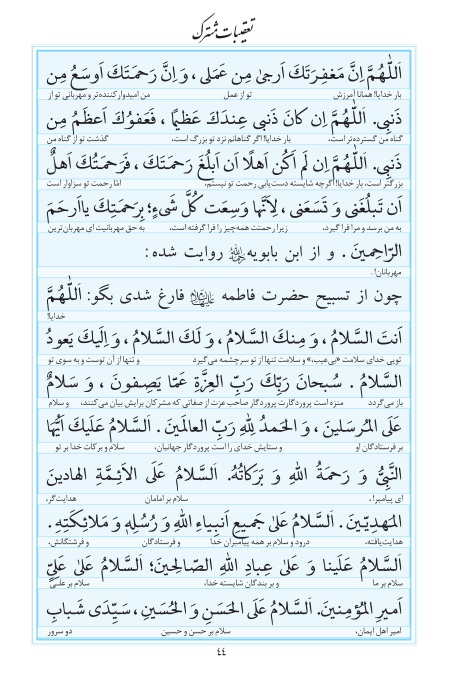 تعقیبات مشترک
اَللّٰهُمَّ اِنَّ مَغفِرَتَكَ اَرجیٰ مِن عَمَلی ، وَ اِنَّ رَحمَتَكَ اَوسَعُ مِن
بار خدایا! همانا آمرزش تو از عمل من امیدوار کننده‌تر و مهربانی تو از
ذَنبی. اَللّٰهُمَّ اِن کانَ ذَنبی عِندَكَ عَظیمًا ، فَعَفوُكَ اَعظَمُ مِن
گناه من گسترده‌تر است، بار خدایا! اگر گناهانم نزد تو بزرگ است، گذشت تو از گناه من
ذَنبی. اَللّٰهُمَّ اِن لَم اَکُن اَهلًا اَن اَبلُغَ رَحمَتَكَ ، فَرَحمَتُكَ اَهلٌ
بزرگتر است، بار خدایا! اگرچه شایسته دست‌یابی رحمت تو نیستم، امّا رحمت تو سزاوار است
اَن تَبلُغَنی وَ تَسَعَنی ، لِاَنَّها وَسِعَت کُلَّ شَیءٍ؛ بِرَحمَتِكَ یا اَرحَمَ
به من برسد و مرا فرا گیرد، زیرا رحمتت همه‌چیز را فرا گرفته است، به حق مهربانیت ای مهربان‌ترین
الرّاحِمینَ . و از ابن بابویه روایت شده :
مهربانان!.
چون از تسبیح حضرت فاطمه فارغ شدی بگو: اَللّٰهُمَّ
خدایا!
اَنتَ السَّلامُ ، وَ مِنكَ السَّلامُ ، وَ لَكَ السَّلامُ ، وَ اِلَیكَ یَعودُ
تویی خدای سلامت «بی‌عیب،» و سلامت تنها از تو سرچشمه می‌گیرد و تنها از آن توست و به سوی تو
السَّلامُ . سُبحانَ رَبِّكَ رَبِّ العِزَّةِ عَمّا یَصِفونَ ، وَ سَلامٌ
باز می‌گردد منزه است پروردگارت پروردگار صاحب عزت از صفاتی که مشرکان برایش بیان می‌کنند، و سلام
عَلَی المُرسَلینَ ، وَ الحَمدُ لِلّٰهِ رَبِّ العالَمینَ . اَلسَّلامُ عَلَیكَ اَیُّهَا
بر فرستادگان او و ستایش خدای را است پروردگار جهانیان. سلام و برکات خدا بر تو
النَّبِیُّ وَ رَحمَةُ اللّٰهِ وَ بَرَکاتُهُ. اَلسَّلامُ عَلَی الاَئِمَّةِ الهادینَ
ای پیامبر!. سلام بر امامان هدایت‌گر،
المَهدِیّینَ . اَلسَّلامُ عَلیٰ جَمیعِ اَنبِیاءِ اللّٰهِ وَ رُسُلِهِ وَ مَلائِکَتِهِ .
هدایت‌یافته، درود و سلام بر همه پیامبران خدا و فرستادگان و فرشتگانش.
اَلسَّلامُ عَلَینا وَ عَلیٰ عِبادِ اللّٰهِ الصّالِحینَ؛ اَلسَّلامُ عَلیٰ عَلِیٍّ
سلام بر ما و بر بندگان شایسته خدا. سلام بر علی
اَمیرِ المُؤمِنینَ. اَلسَّلامُ عَلَی الحَسَنِ وَ الحُسَینِ ، سَیِّدَی شَبابِ
امیر اهل ایمان. سلام بر حسن و حسین دو سرور
٤٤